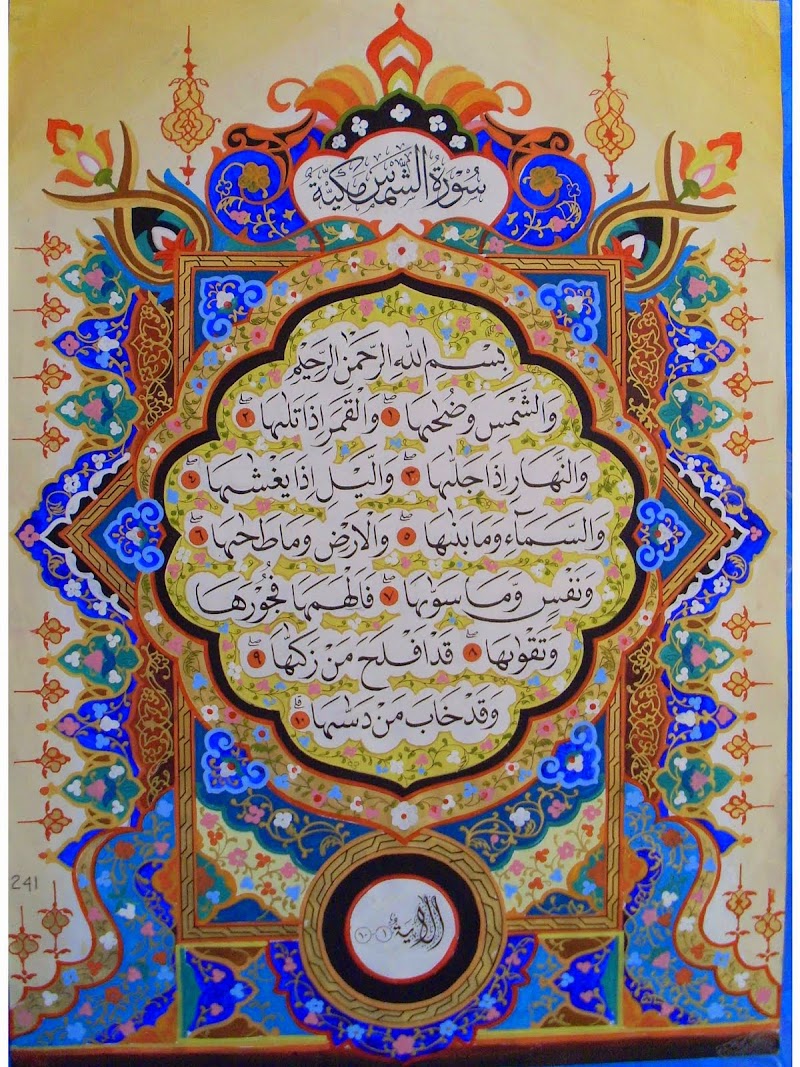 سُورَةُ الشَّمْسِ مَكِّيَّة
بِسْمِ اللهِ الرَّحْمٰنِ الرَّحِيْمِ
وَالشَّمْسِ وَضُحٰىهَا ۱ وَالْقَمَرِ اِذَا تَلٰىهَا ۲
وَالنَّهَارِ اِذَا جَلّٰىهَا ۳ وَالَّيْلِ اِذَا يَغْشٰىهَا ٤
وَالسَّمَآءِ وَمَا بَنٰىهَا ٥ وَالْاَرْضِ وَمَا طَحٰىهَا ٦
وَنَفْسٍ وَّمَا سَوّٰىهَا ٧ فَاَلْهَمَهَا فُجُوْرَهَا
وَتَقْوٰىهَا ٨ قَدْ اَفْلَحَ مَنْ زَكّٰىهَا ٩
وَقَدْ خَابَ مَنْ دَسّٰىهَا ١٠
الآية ١-١٠
241